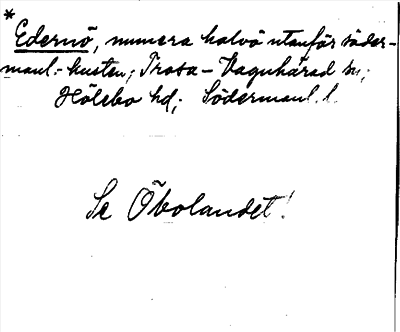 *
Edernö, numera halvö utanför söder-
manl.-kusten; Trosa-Vagnhärad sn;
Hölebo hd; Södermanl. l.
Se Öbolandet!